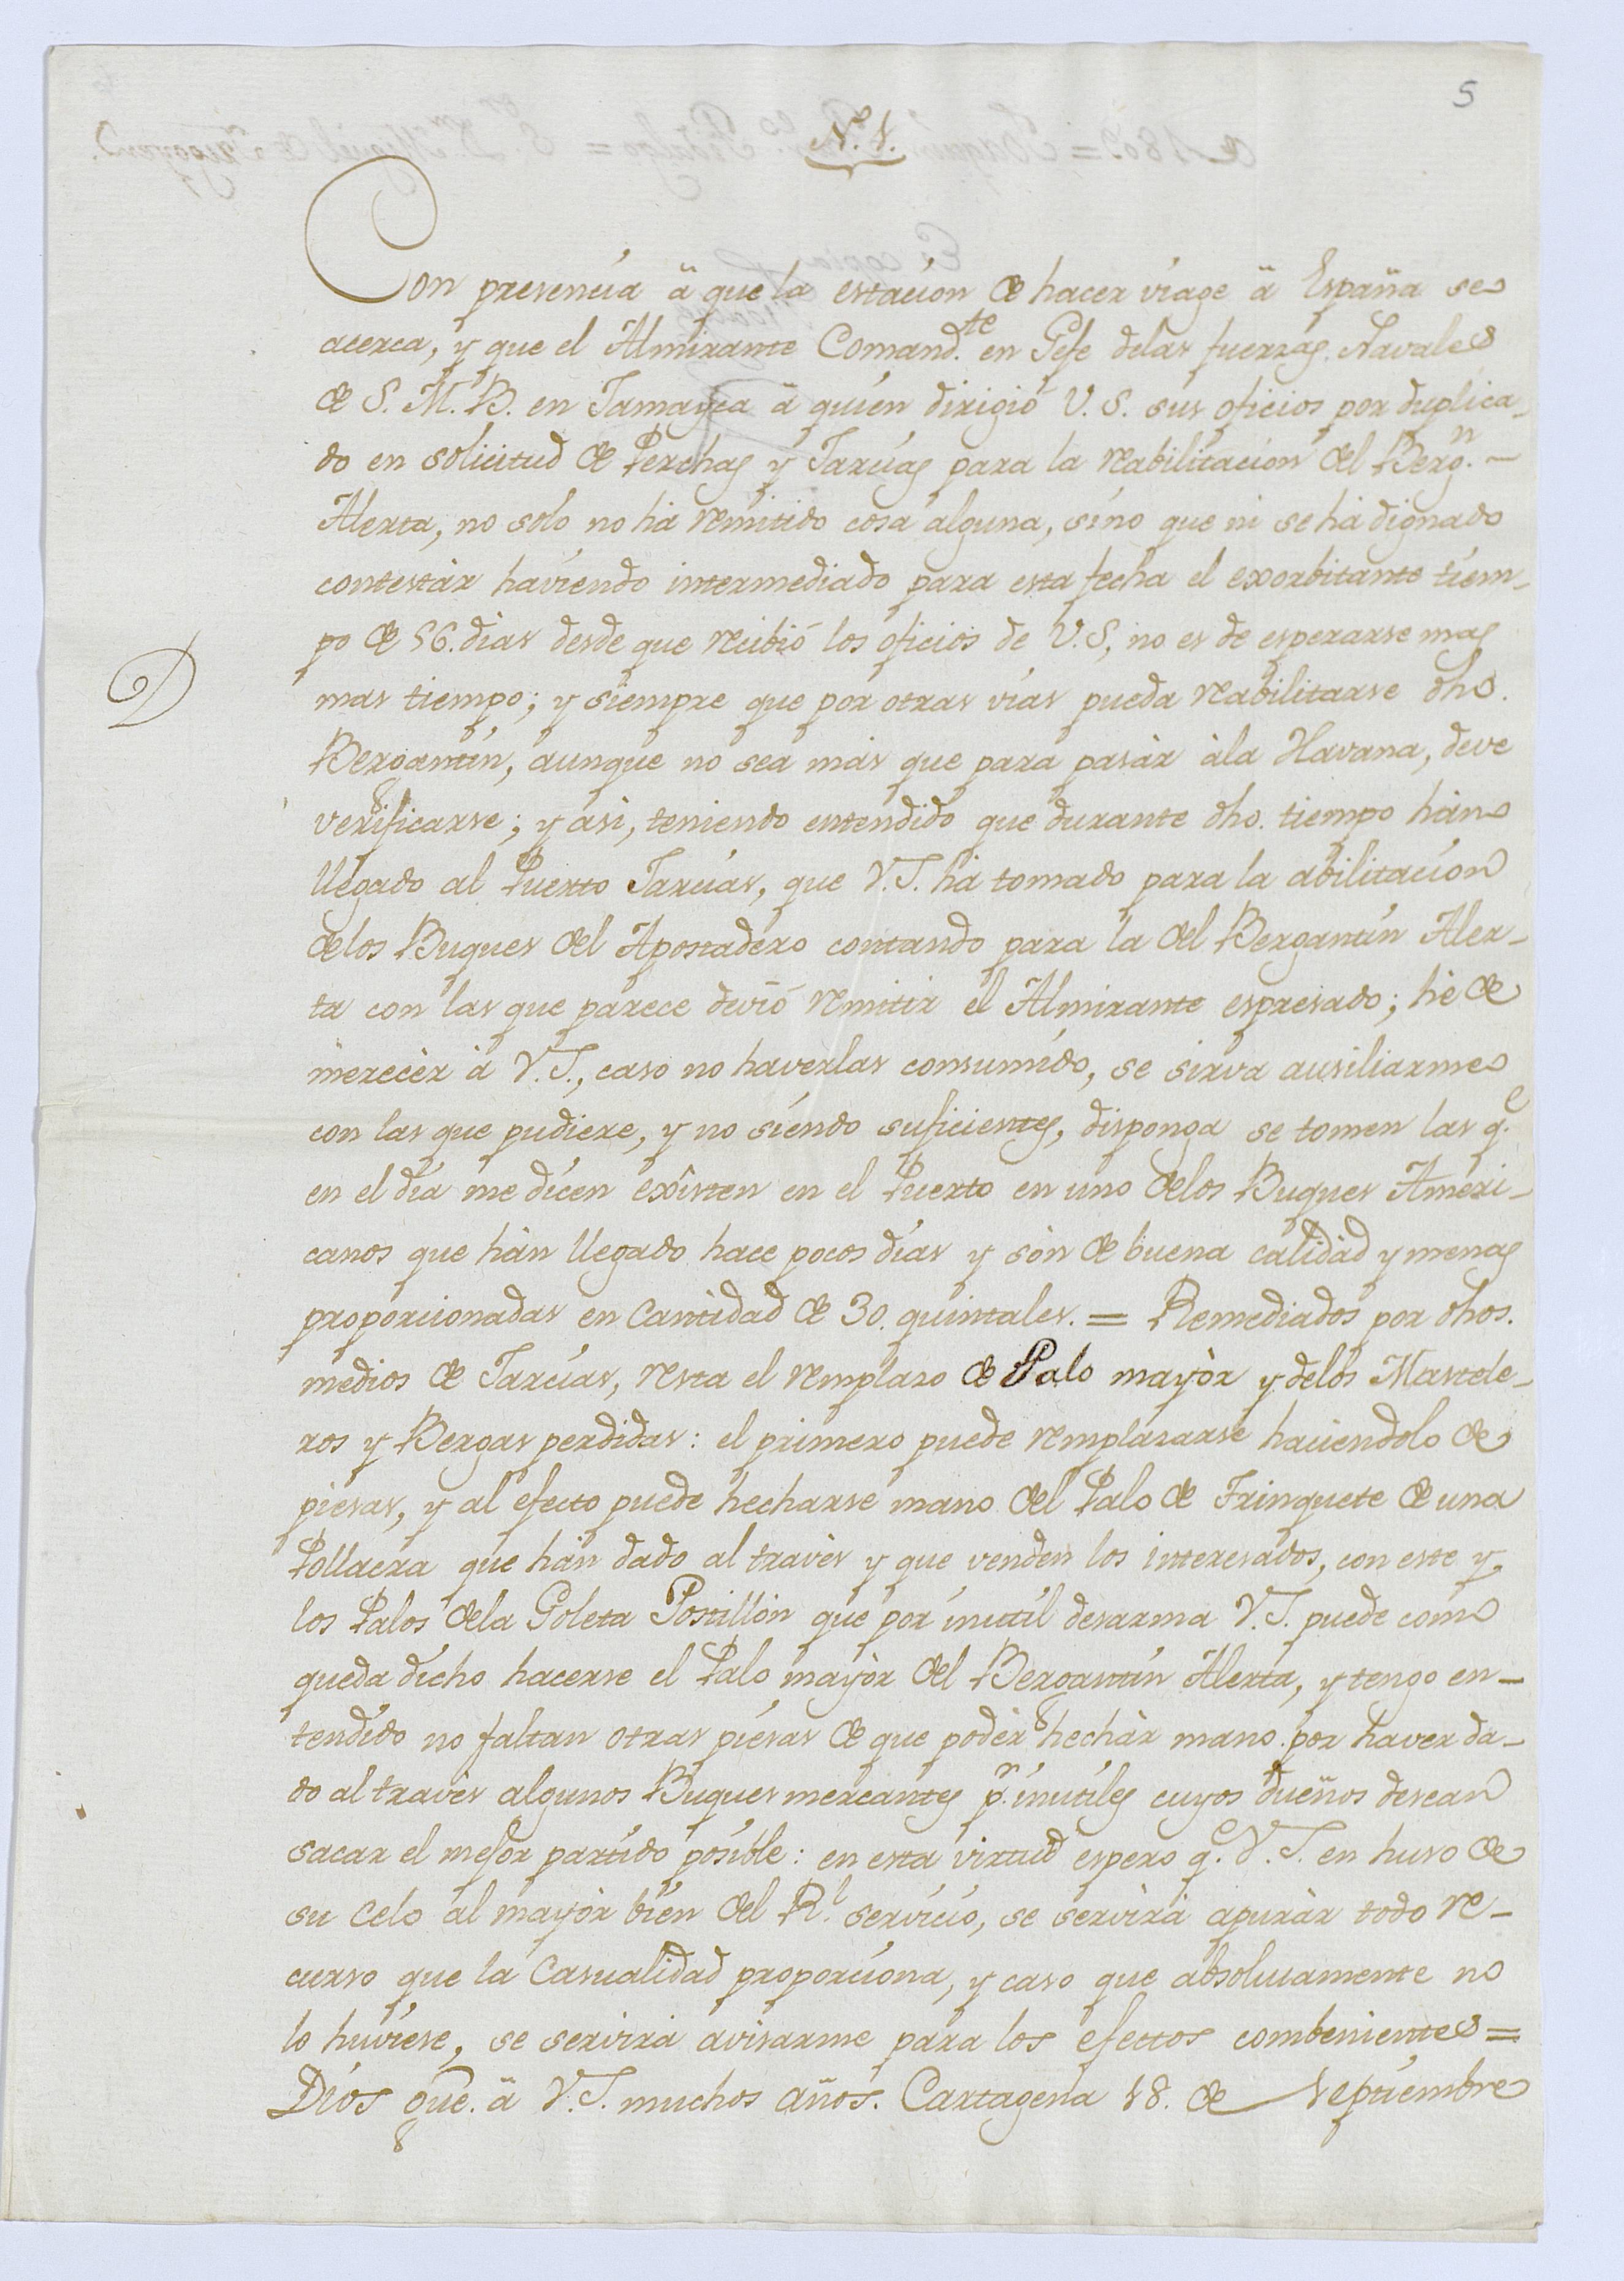 5
N. 1.
Con presencia à que la estacion de hacer viage à España se
acerca, y que el Almirante Comand.te en Gefe delas fuerzas Navales
de S. M. B. en Jamayca à quien dirigió V. S. sus oficios por duplica-
do en solicitud de Perchas y Jarcias para la reabilitacion del Berg.n
Alerta, no solo no hà remitido cosa alguna, sino que ni se hà dignado
contestàr haviendo intermediado para esta fecha el exorbitante tiem-
po de 56. dias desde que recibió los oficios de V. S, no es de esperarse mas
mas tiempo; y siempre que por otras vias pueda reabilitarse dho.
Bergantin, aunque no sea màs que para pasàr àla Havana, deve
verificarse; y asi, teniendo entendido que durante dho. tiempo hàn
llegado al Puerto Jarcias, que V. S. hà tomado para la abilitacion
delos Buques del Apostadero contando para la del Bergantin Aler-
ta con las que parece devió remitir el Almirante espresado; hè de
merecèr à V. S., caso no haverlas consumido, se sirva ausiliarme
con las que pudiere, y no siendo suficientes, disponga se tomen las q.e
en el dia me dicen exîsten en el Puerto en uno delos Buques Ameri-
canos que hàn llegado hace pocos dias y sòn de buena calidad y menas
proporcionadas en Cantidad de 30. quintales. = Remediados por dhos.
medios de Jarcias, resta el remplaso de Palo mayòr y delos Mastele-
ros y Bergas perdidas: el primero puede remplasarse haciendolo de
piesas, y al efecto puede hecharse mano del Palo de Trinquete de una
Pollacra que hàn dado al travès y que venden los interesados, con este y
los Palos dela Goleta Postillòn que por inutil desarma V. S. puede como
queda dicho hacerse el Palo mayòr del Bergantin Alerta, y tengo en-
tendido no faltan otras piesas de que podèr hechàr mano por haver da-
do al travès algunos Buques mercantes p.r inutiles cuyos dueños desean
sacar el mejor partido posible: en esta virtud espero q.e V. S. en huso de
su Celo al mayòr bien del R.l servicio, se servirà apuràr todo re-
curso que la Casualidad proporciona, y caso que absolutamente no
lo huviese, se servirà avisarme para los efectos combenientes =
Dios gue. à V. S. muchos años. Cartagena 18. de Septiembre